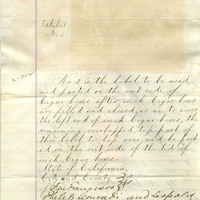 Exhibit
No 2
No 2 is the label to be used
and pasted on the out side of
Cigar boxes after such Cigar boxes
are filled and closed, so as to cover
the left end of such Cigar boxes, the
remaining overlapped top part of
this label to lap over and to be past
ed on the out side of the lid of
such Cigar boxes.
State of California
City and County
San Francisco
Philip and Leopold